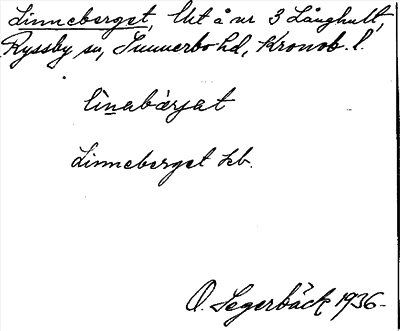 Linneberget, lht å nr 3 Långhult,
Ryssby sn, Sunnerbo hd, Kronob. l.
lìnabàrjat
Linneberget hb.
O. Segerbäck 1936-